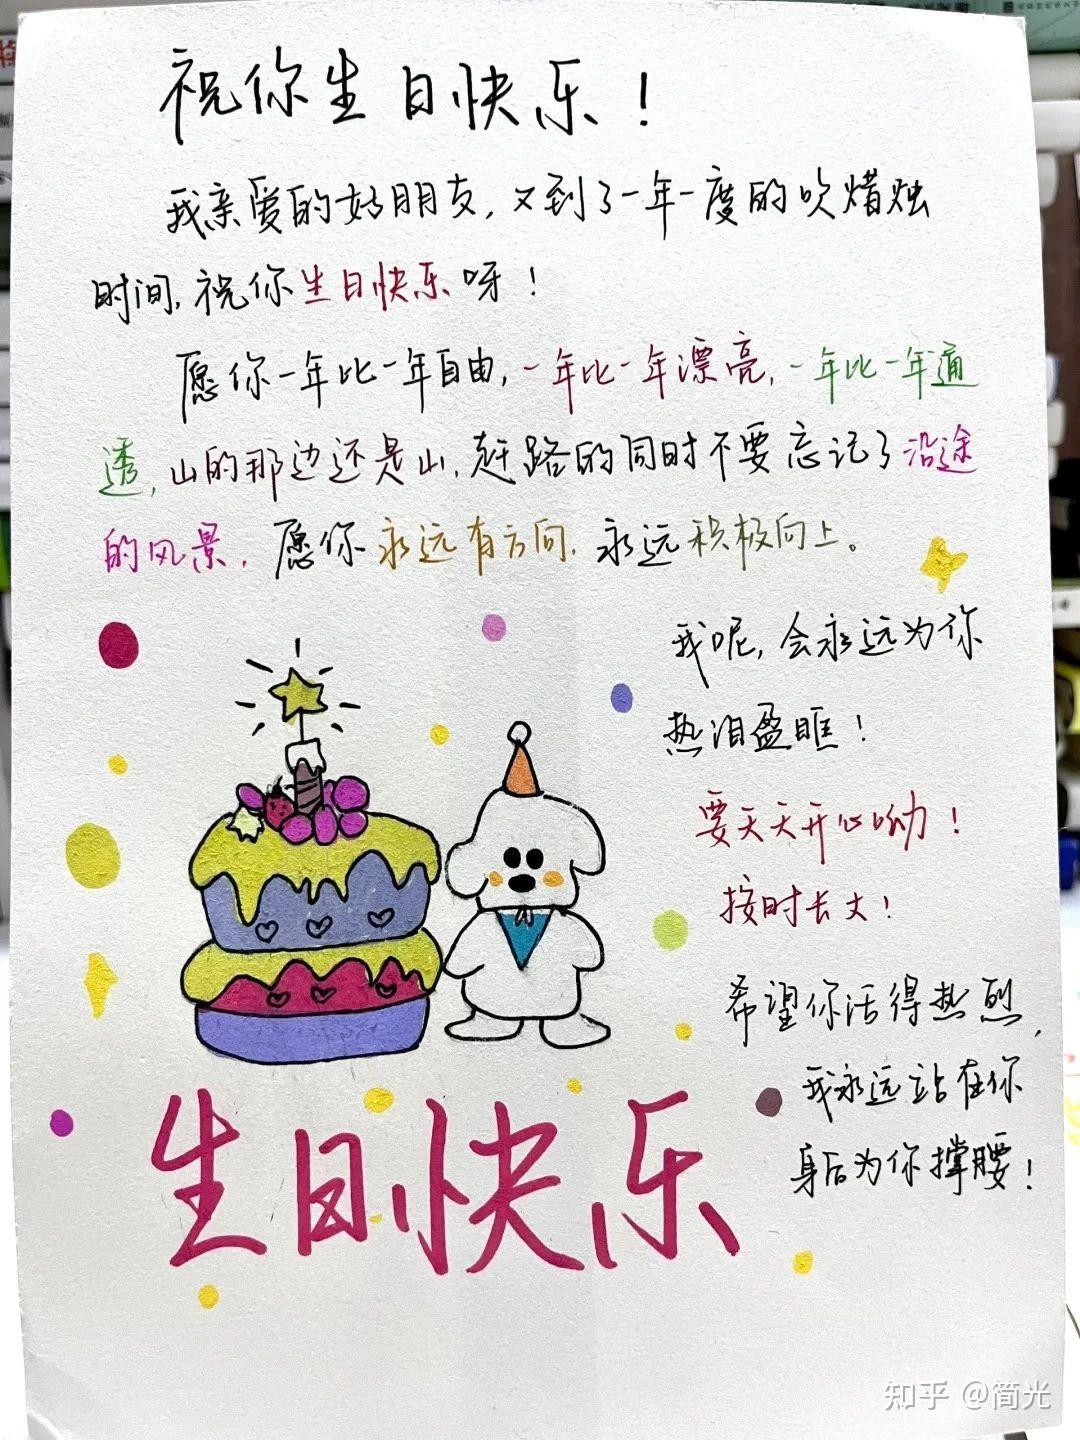 祝你生日快乐!
我亲爱的好朋友,又到了一年一度的吹蜡烛
时间,祝你生日快乐呀!
愿你一年比一年自由,一年比一年漂亮,一年比一年通
透,山的那边还是山,赶路的同时不要忘记了沿途
的风景,愿你永远有方向,永远积极向上。
我呢,会永远为你
热泪盈眶!
要天天开心呦!
按时长大!
希望你活得热烈,
我永远站在你
身后为你撑腰!
生日快乐
知乎 @简光